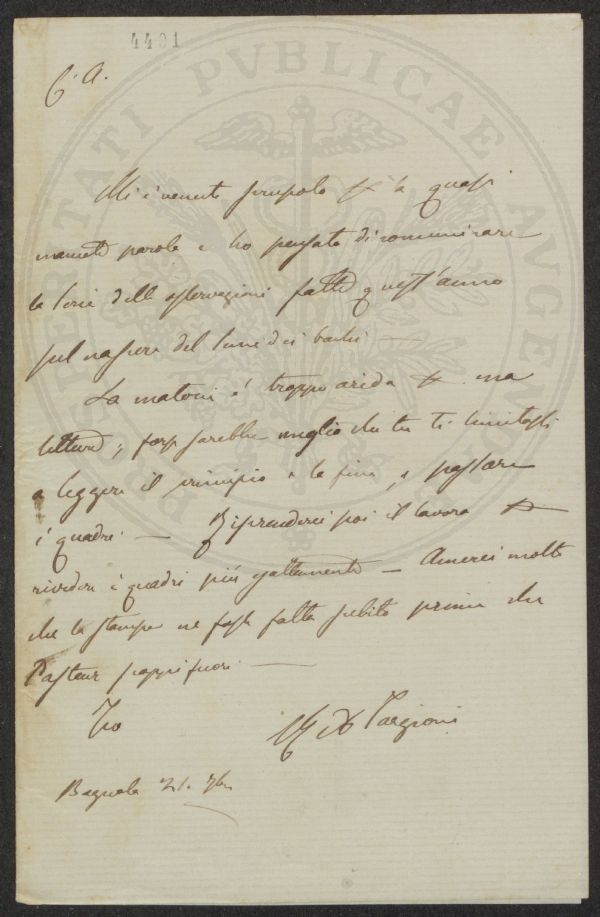 4491
C. A.
Mi è venuto scrupolo per la quasi
mancata parola e ho pensato di comunicare
la serie delle osservazioni fatte quest'anno
sul nascere del seme dei bachi —
La materia è troppo arida per una
lettura; forse sarebbe meglio che tu ti limitassi
a leggere il principio e la fine, e passare
i quadri. — Riprenderei poi il lavoro per
rivedere i quadri più esattamente — Amerei molto
che la stampa ne fosse fatta subito prima che
Pasteur scappi fuori. —
Tuo
Targioni
Bagnolo 21. 7bre
PROSPERITATI PVBLICAE AVGENDAE